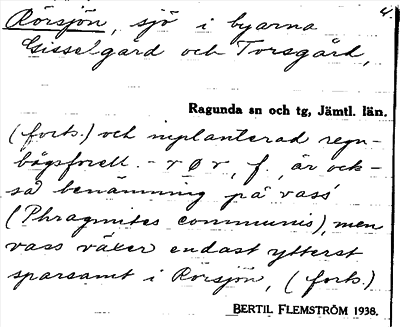 4.
Rörsjön, sjö i byarna
Gisselgård och Torsgård,
Ragunda sn och tg, Jämtl. län.
(forts.) och inplanterad regn-
bågsforell. - rør, f., är ock-
så benämning på vass
(Phragmites communis), men
vass växer endast ytterst
sparsamt i Rörsjön, (forts.)
BERTIL FLEMSTRÖM 1938.